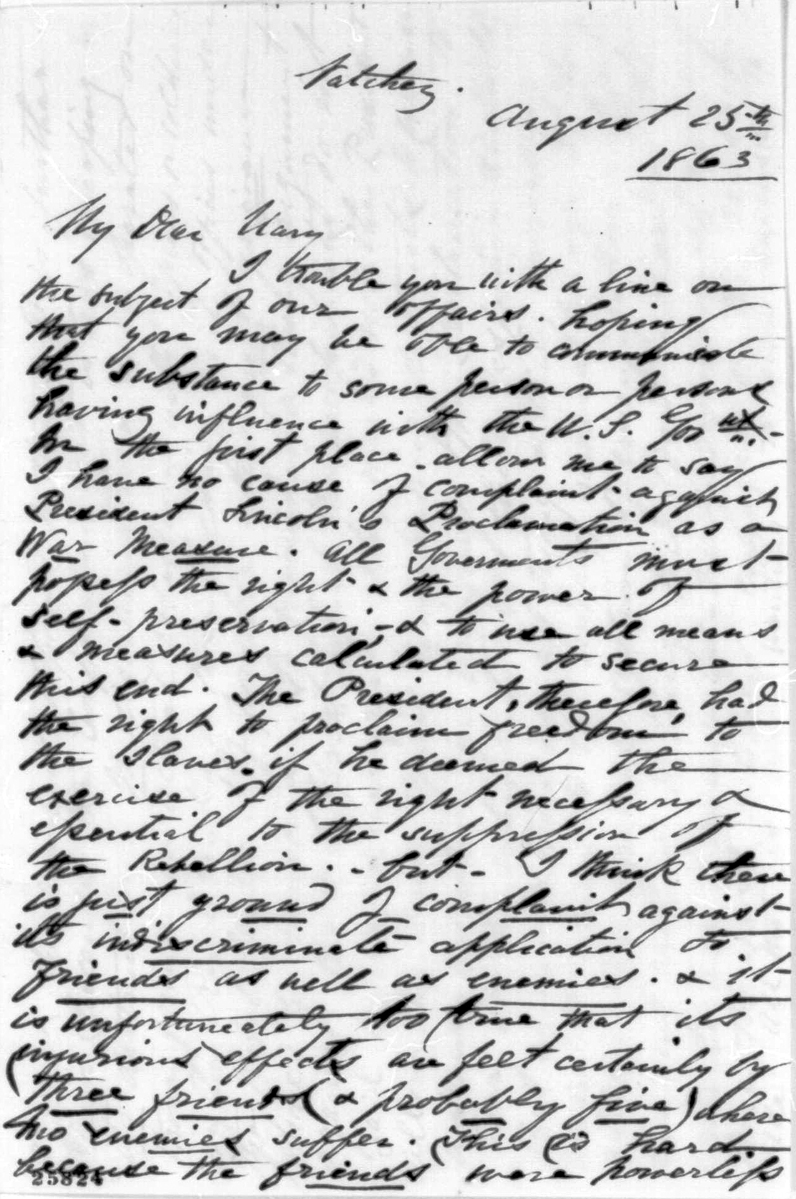 Natchez.
August 25th
1863
My Dear Mary
I trouble you with a line on
the subject of our affairs. hoping
that you may be able to communicate
the substance to some person or persons
having influence with the U.S. Govnt.
In the first place allow me to say
I have no cause of complaint against
President Lincoln's Proclamation as a
War Measure. All Goverments must
possess the right & the power of
self-preservation, - & to use all means
& measures calculated to secure
this end. The President, therefore, had
the right to proclaim freedom to
the Slaves. if he deemed the
exercise of the right necessary &
essential to the suppression of
the Rebellion. - but - I think there
is just ground of complaint against
its indiscriminate application to
friends as well as enemies. & it
is unfortunately too true that its
injurious effects are felt certainly by
three friends (& probably five) where
no enemies suffer. This is hard
because the friends were powerless
25824